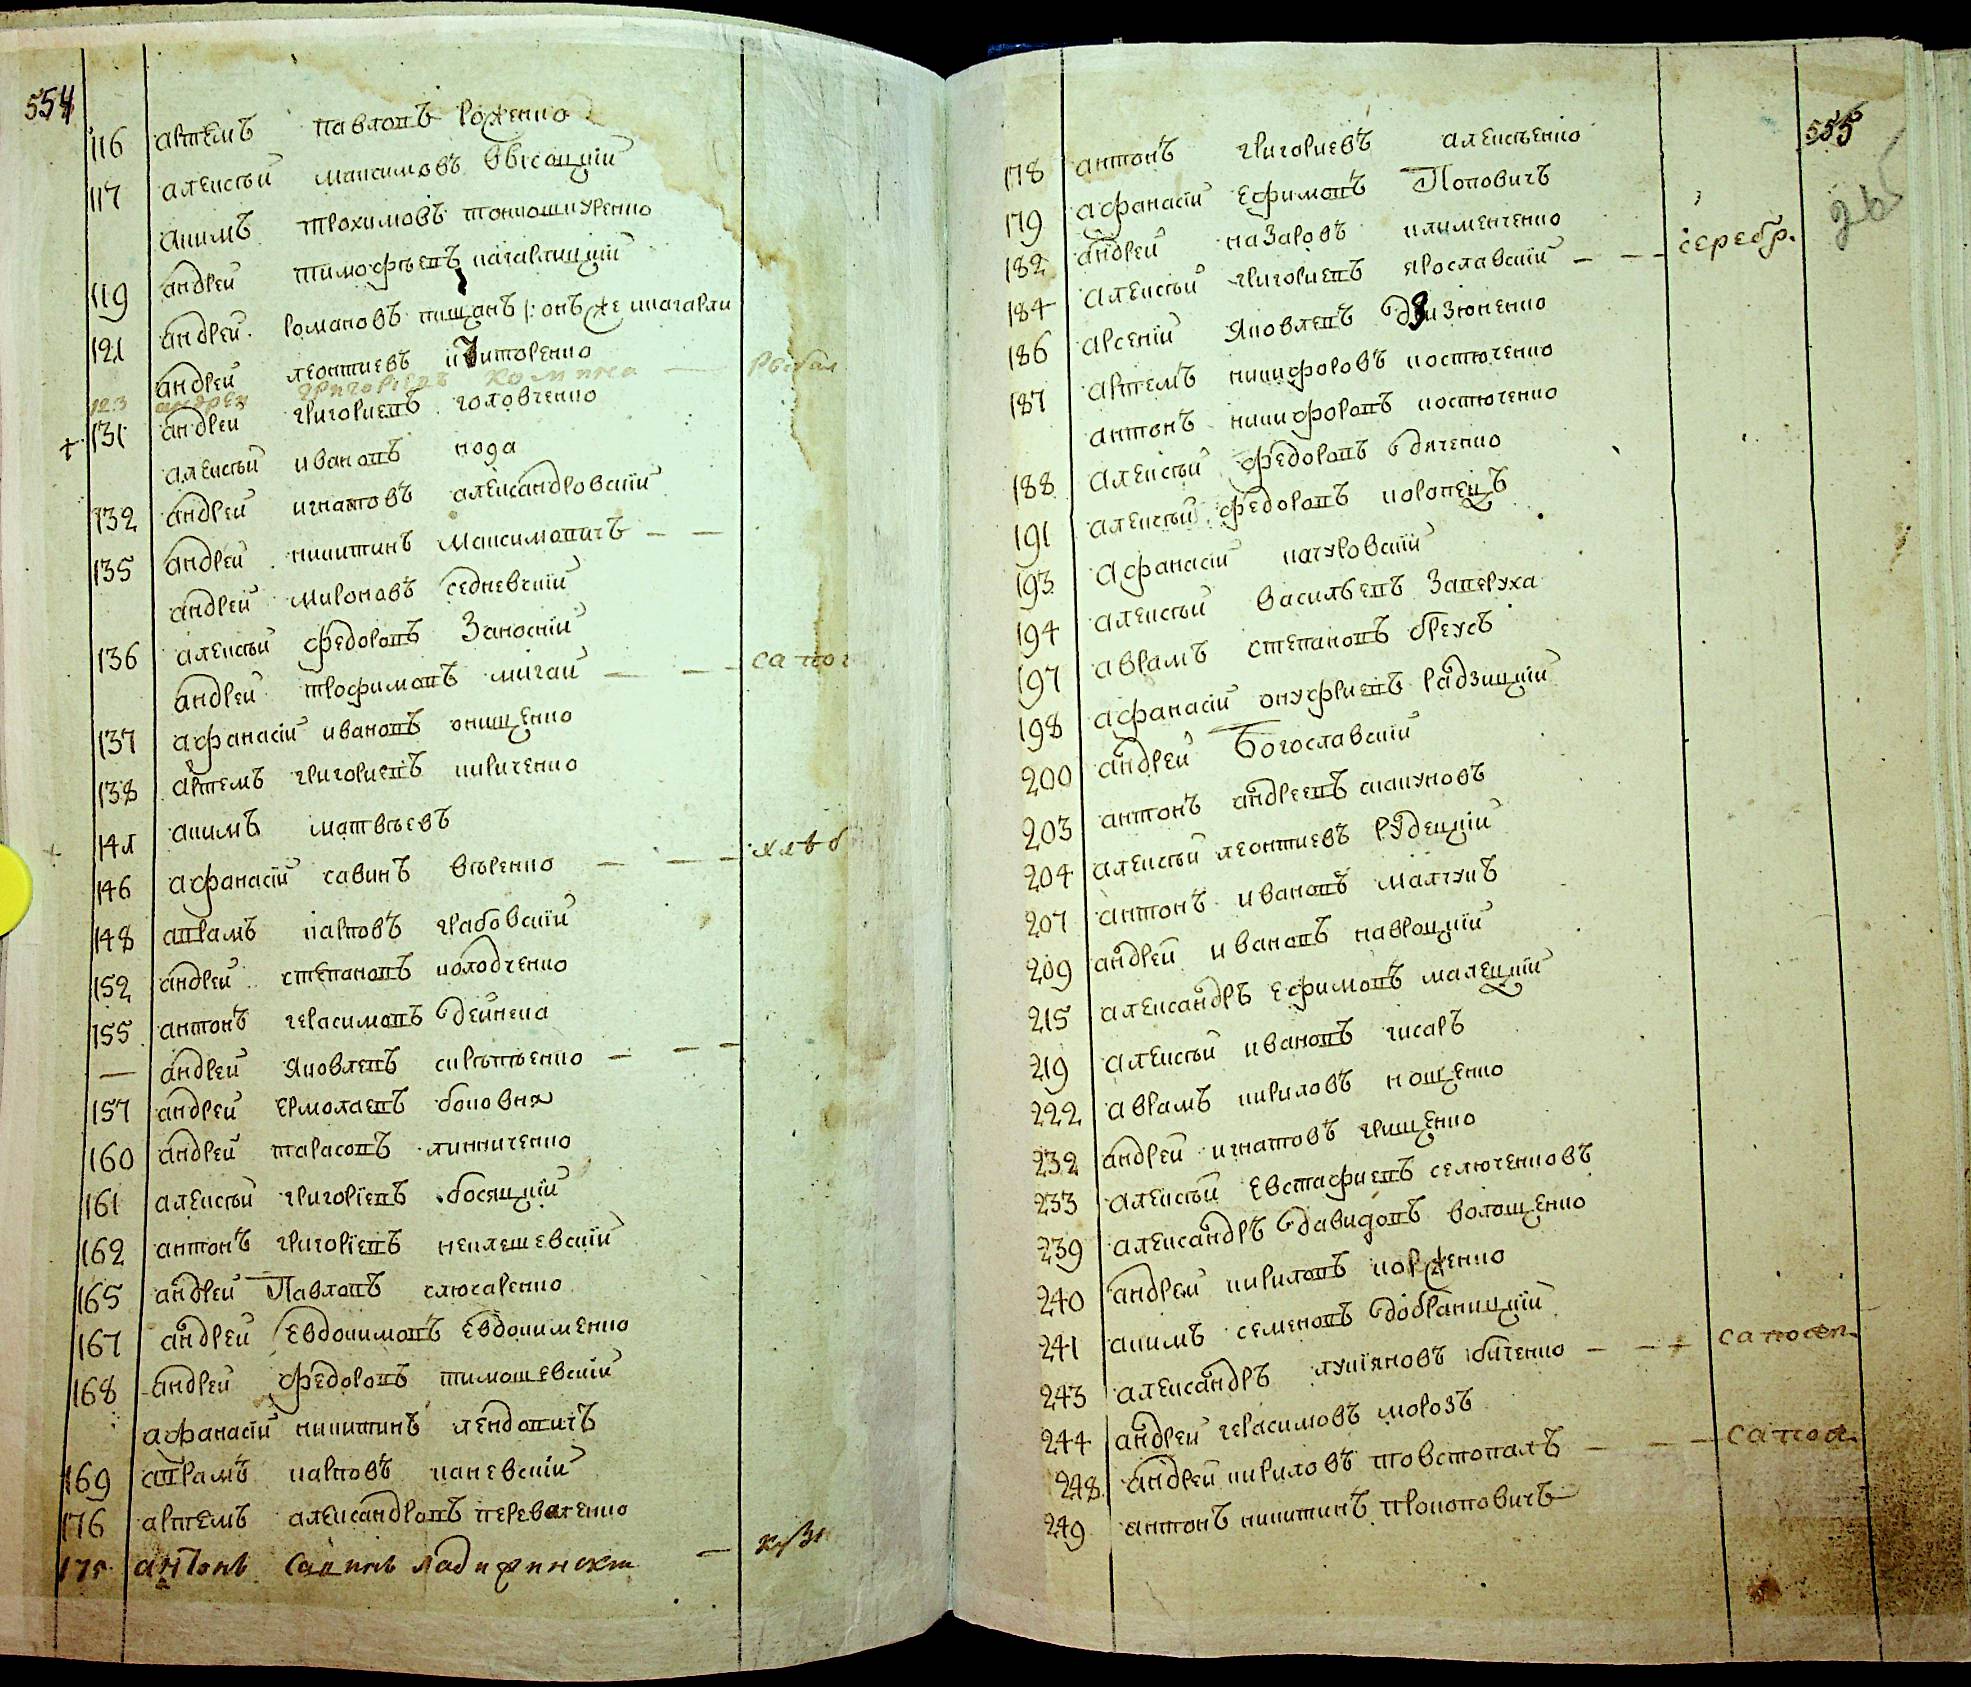 554
116 артемъ павловъ роженко
117 алексѣй максимовъ высоцкій
акимъ трохимовъ тонкошкуренко
119 андрей тимофѣевъ кагарлицкій
121 андрей романовъ пищанъ |: онъ же кпагарли
андрей леонтиевъ никторенко
123 андрей григориевъ комлика — рыбал
+ 131 андреи григориевъ головченко
алексѣй ивановъ кода
132 андрей игнатовъ александровскій
135 андрей никитинъ максимовичъ — —
андрей мироновъ седневскій
136 алексѣй федоровъ заноскій
андрей трофимовъ мигай — — сапог
137 афанасій ивановъ онищенко
138 артемъ григориевъ кириченко
141 акимъ матвѣевъ
146 афанасій савинъ вѣренко — — — хлѣб
148 аврамъ карповъ грабовскій
152 андрей степановъ колодченко
155 антонъ герасимовъ дейнека
— андрей яковлевъ сирѣтѣенко — — —
157 андрей ермолаевъ боковня
160 андрей тарасовъ линниченко
161 алексѣй григоріевъ босяцкій
162 антонъ григоріевъ неклешевскій
165 андрей Павловъ слюсаренко
167 андрей евдокимовъ евдокименко
168 андрей федоровъ тимошевскій
афанасій никитинъ лендовичъ
169 аврамъ карповъ каневскій
176 артемъ александровъ переваленко
175 антонъ савинъ ладижинскт — кузн
555
26
178 антонъ григориевъ алексѣенко
179 афанасій ефимовъ Поповичъ
182 андрей назаровъ клименченко
184 алексѣй григориевъ ярославскій — — серебр.
186 арсеній яковлевъ дзизюненко
187 артемъ никифоровъ костюченко
антонъ никифоровъ костюченко
188 алексѣй федоровъ дяченко
191 алексѣй федоровъ коропецъ
193 афанасій качуровскій
194 алексѣй васильевъ заверуха
197 аврамъ степановъ бреусъ
198 афанасій онуфриевъ радзицкій
200 андрей Богославскій
203 антонъ андреевъ скакуновъ
204 алексѣй леонтиевъ рудецкій
207 антонъ ивановъ малчукъ
209 андрей ивановъ навроцкій
215 александръ ефимовъ малецкій
219 алексѣй ивановъ чисаръ
222 аврамъ кириловъ нощенко
232 андрей игнатовъ грищенко
233 алексѣй евстафиевъ селюченковъ
239 александръ давидовъ волощенко
240 андрей кириловъ корженко
241 акимъ семеновъ добраницкій
243 александръ лукіяновъ биченко — — — сапожн.
244 андрей герасимовъ морозъ
248. андрей кириловъ товстопалъ — — — сапож.
249 антонъ никитинъ прокоповичъ